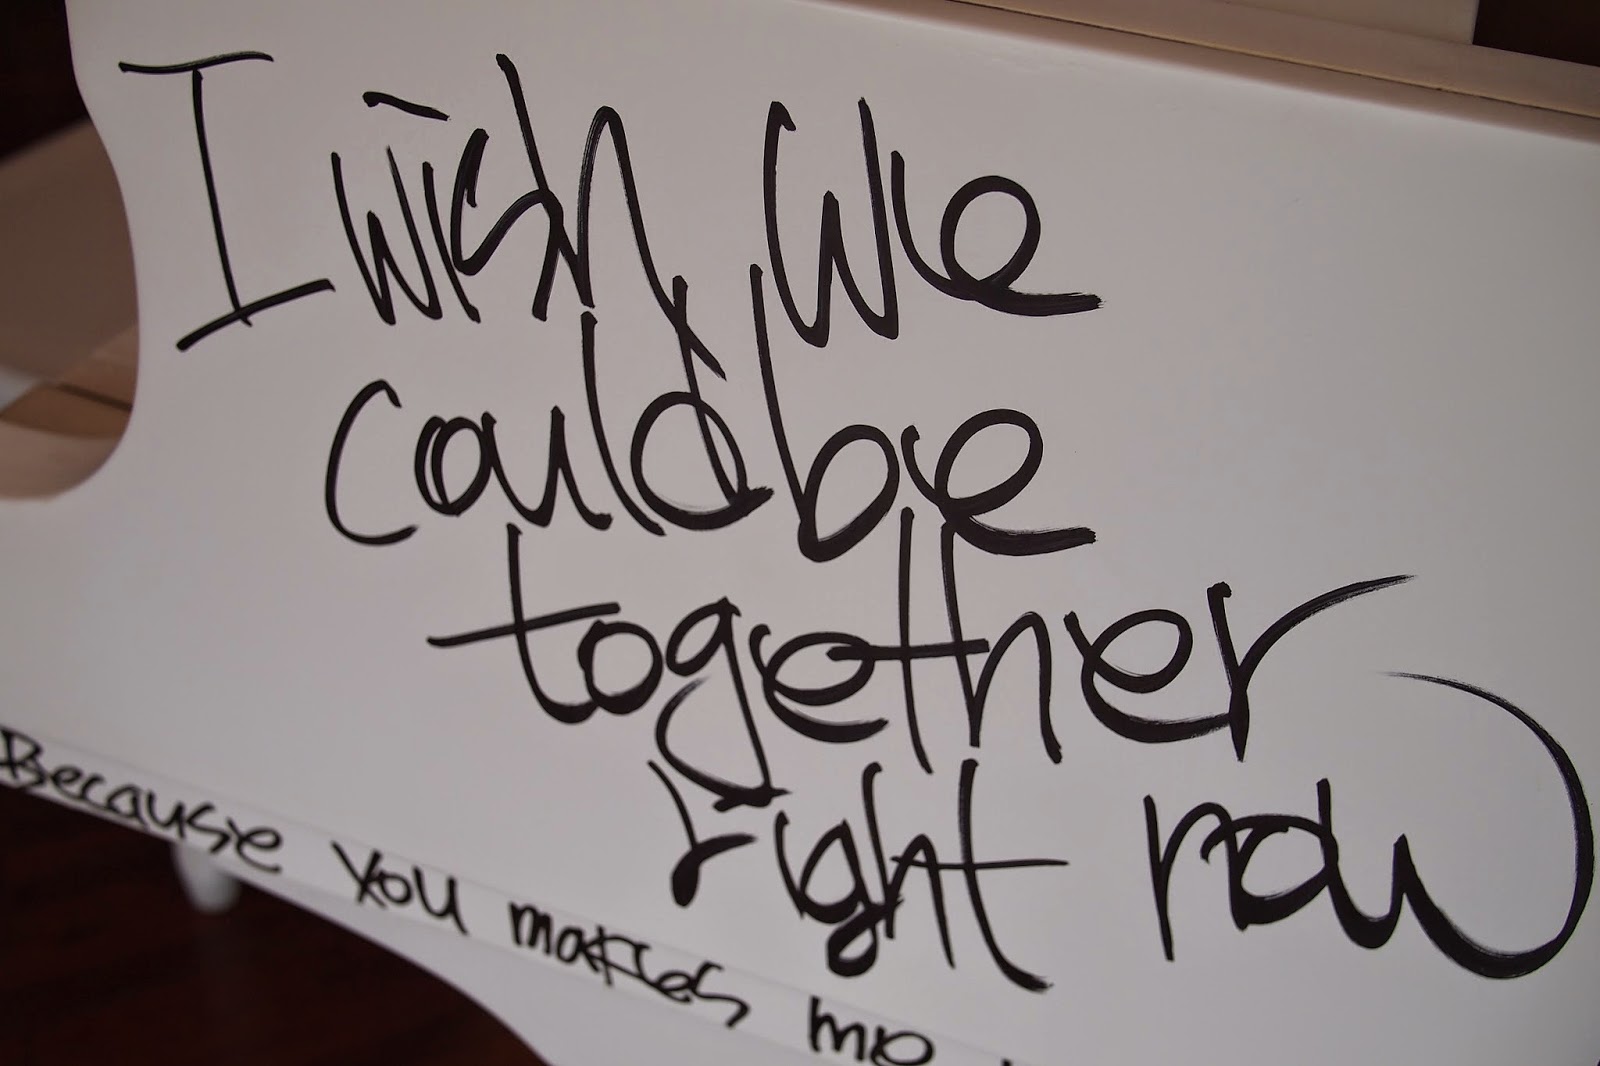 I wish we
could be
together
right now
Because you makes me